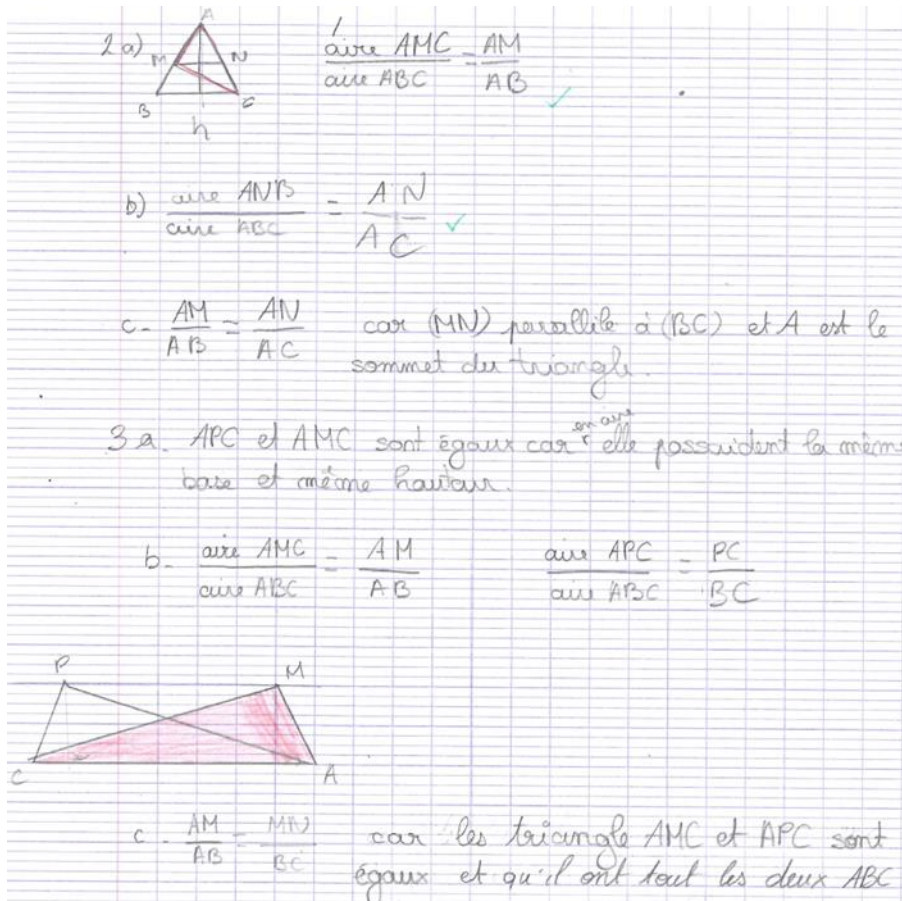 A
2 a) M N aire AMC / aire ABC = AM / AB
B C
h
b) aire ANB / aire ABC = AN / AC
c- AM / AB = AN / AC car (MN) parallile à (BC) et A est le
sommet du triangle.
3 a. APC et AMC sont égaux en aire car elle possaident la même
base et même hautaur.
b- aire AMC / aire ABC = AM / AB aire APC / aire ABC = PC / BC
P M
C A
c - AM / AB = MN / BC car les triangle AMC et APC sont
égaux et qu'il ont tout les deux ABC